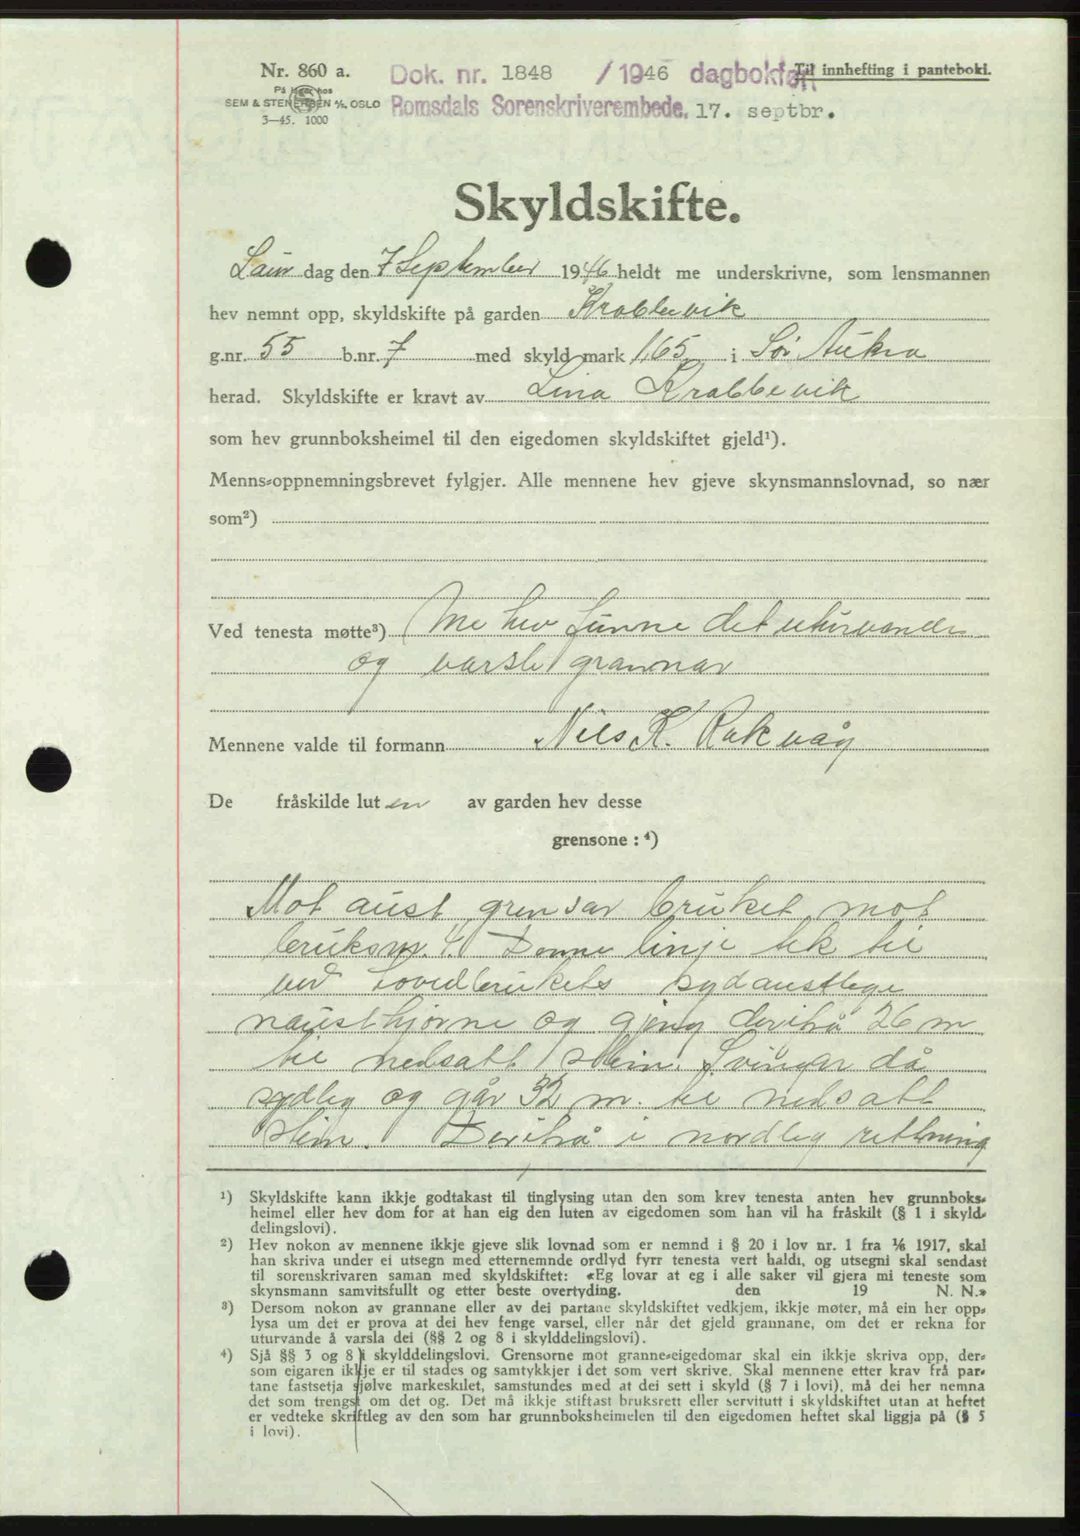 Nr. 860 a.
Dok. nr. 1848 /1946 dagbokført
Til innhefting i pantebok.
På lager hos
SEM & STENERSEN A/S, OSLO
3—45. 1000
Romsdals Sorenskriverembede. 17. septbr.
Skyldskifte.
Laur dag den 7 September 1946 heldt me underskrivne, som lensmannen
hev nemnt opp, skyldskifte på garden Krabbevik
g.nr. 55 b.nr. 7 med skyld mark 1,65 i Sør Aukra
herad. Skyldskifte er kravt av Lina Krabbevik
som hev grunnboksheimel til den eigedomen skyldskiftet gjeld¹).
Menns-oppnemningsbrevet fylgjer. Alle mennene hev gjeve skynsmannslovnad, so nær
som²)
Ved tenesta møtte³) Me hev funne det uturvande
og varsle grannar
Mennene valde til formann Nils K. Rakvåg
De fråskilde luten av garden hev desse
grensone : ⁴)
Mot aust grensar bruket mot
bruksnr. 4. Denne linje tek til
ved hovedbrukets sydaustlege
nausthjørne og gjeng derifrå 26 m
til nedsatt stein. Svingar då
sydleg og går 32 m. til nedsatt
stein. Derifrå i nordleg rettning
¹) Skyldskifte kann ikkje godtakast til tinglysing utan den som krev tenesta anten hev grunnboks-
heimel eller hev dom for at han eig den luten av eigedomen som han vil ha fråskilt (§ 1 i skyld-
delingslovi).
²) Hev nokon av mennene ikkje gjeve slik lovnad som er nemnd i § 20 i lov nr. 1 fra 1/6 1917, skal
han skriva under ei utsegn med etternemnde ordlyd fyrr tenesta vert haldi, og utsegni skal sendast
til sorenskrivaren saman med skyldskiftet: «Eg lovar at eg i alle saker vil gjera mi teneste som
skynsmann samvitsfullt og etter beste overtyding. den 19 N. N.»
³) Dersom nokon av grannane eller av dei partane skyldskiftet vedkjem, ikkje møter, må ein her opp-
lysa um det er prova at dei hev fenge varsel, eller når det gjeld grannane, om det er rekna for
uturvande å varsla dei (§§ 2 og 8 i skylddelingslovi).
⁴) Sjå §§ 3 og 8 i skylddelingslovi. Grensorne mot granne-eigedomar skal ein ikkje skriva opp, der-
som eigaren ikkje er til stades og samtykkjer i det som vert skrive. Skal mennene etter krav frå par-
tane fastsetja sjølve markeskilet, samstundes med at dei sett i skyld (§ 7 i lovi), må dei her nemna
det som trengst om det og. Det må ikkje stiftast bruksrett eller servitutt i skyldskiftet utan at heftet
er vedteke skriftleg av den som har grunnboksheimelen til den eigedomen heftet skal liggja på (§ 5
i lovi).